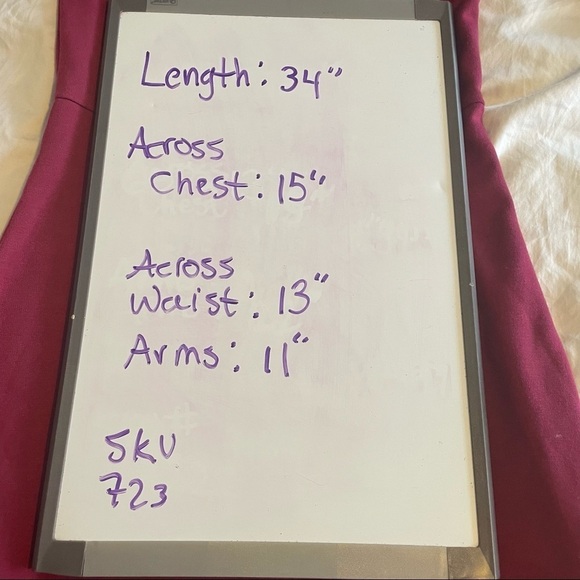 Length: 34"
Across
Chest: 15"
Across
Waist: 13"
Arms: 11"
SKU
723